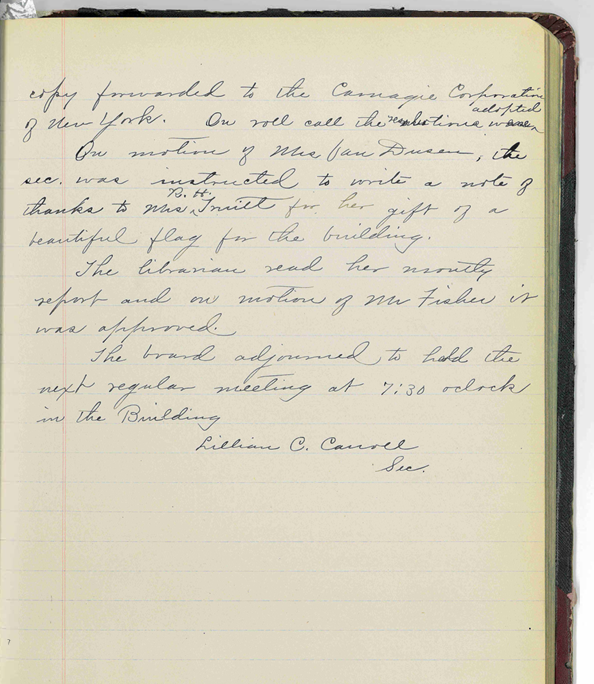 copy forwarded to the Carnagie Corporation
of New York. On roll call the resolutions were adopted
On motion of Mrs Van Dusen, the
sec. was instructed to write a note of
thanks to Mrs B. H. Truitt for her gift of a
beautiful flag for the building.
The librarian read her montly
report and on motion of Mr Fisher it
was approved.
The board adjourned to hold the
next regular meeting at 7:30 oclock
in the Building
Lillian C. Carroll
Sec.